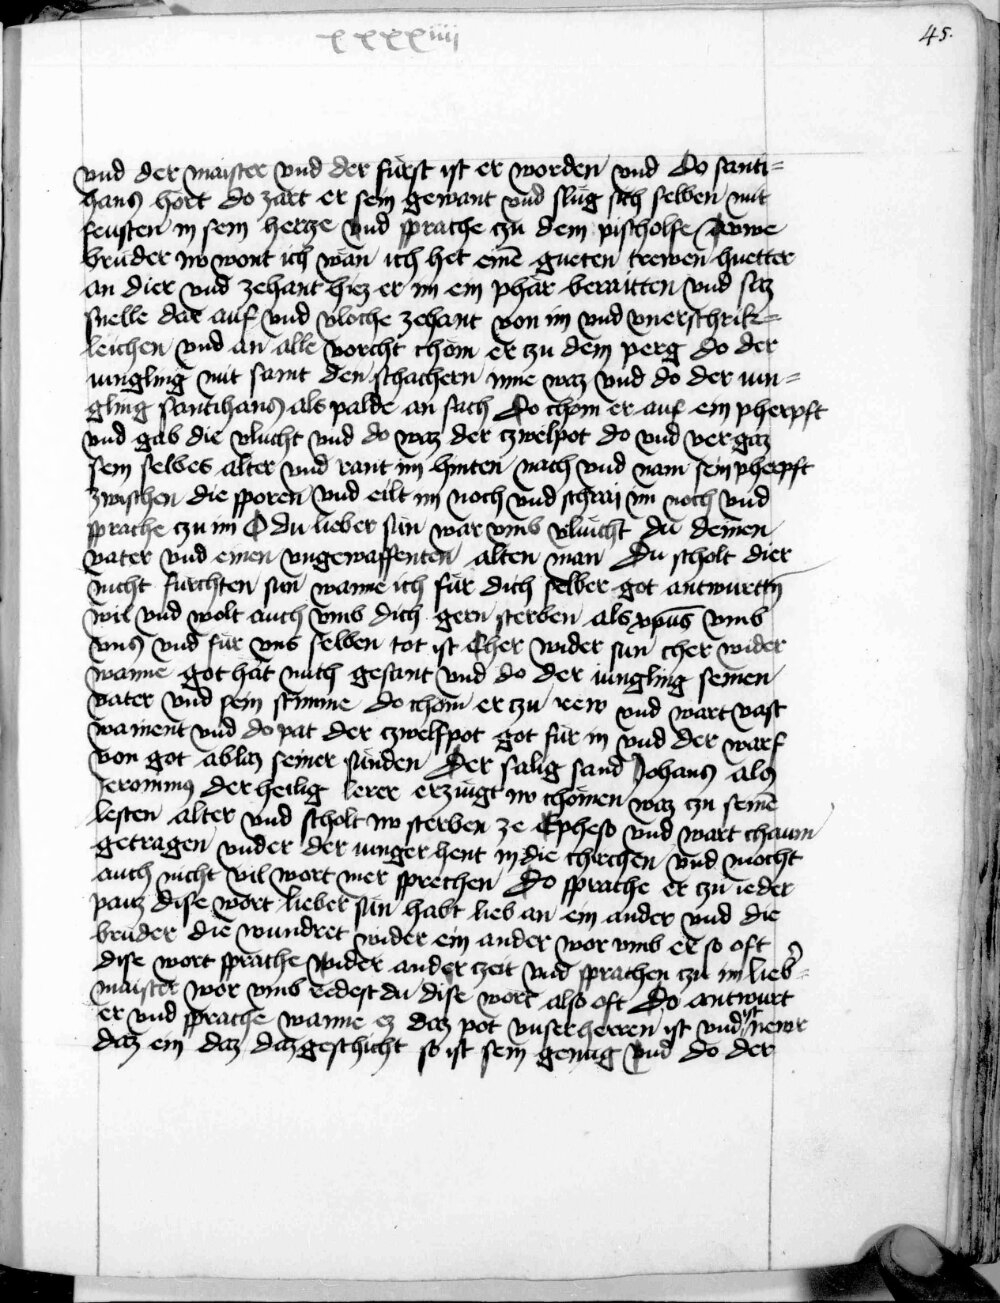 xxxxiiij
45.
vnd der maister vnd der fürst ist er worden vnd Do santi=
hans hört do zart er sein gewant vnd slüg sich selben mit
feusten in sein hercze vnd sprache czu dem pischolfe Awwe
brüder nw wont ich wan ich het einē gueten trewen huetter
an dier vnd zehant hiez er im ein phär beraitten vnd saz
snelle dar auf vnd vloche zehant von im vnd vnerschrik=
leichen vnd an alle vorcht chom er czu dem perg do der
iungling mit samt den schachern inne waz vnd do der iun=
gling santihans als palde an sach Do chom er auf ein pherpft
vnd gab die vlucht vnd do waz der czwelpot do vnd vergaz
sein selbes alter vnd rant im hinten nach vnd nam sein pherpft
zwischen die sporen vnd eilt im noch vnd schrai im noch vnd
sprache czu im O du lieber sün war vmb vluicht du deinen
vater vnd einen vngewaffenten alten man Du scholt dier
nicht furchten sun wanne ich für dich selber got antwurttn
wil vnd wolt auch vmb dich gern sterben als xp̄us vmb
vns vnd für vns selben tot ist Cher wider sun cher wider
wanne got hat mich gesant vnd do der iungling seinen
vater vnd sein stimme do chom er czu rew vnd wart vast
wainent vnd do pat der czwelfpot got für in vnd der warf
von got ablaz seiner sünden Der salig sand Johans als
Jeronimus der heilig lerer erzuigt nw chömen waz czu seinē
lesten alter vnd scholt nw sterben ze Epheso vnd wart chaum
getragen vnder der iunger hent in die chirchen vnd mocht
auch nicht vil wort mer sprechen Do sprache er czu ieder
pauz dise wort lieber sün habt lieb an ein ander vnd die
brüder die wundret wider ein ander wor vmb er so oft
dise wort sprache wider ander czeit vnd sprachen czu im lieb'=
maister wor vmb redest du dise wort also oft Do antwurt
er vnd sprache wanne ez daz pot vnser herren ist vnd ist newr
daz ein daz daz geschicht so ist sein genüg vnd do der